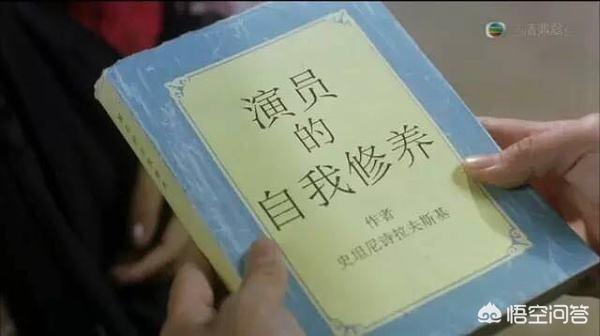 演员
的
自我修养
作者
史坦尼诗拉夫斯基
悟空问答